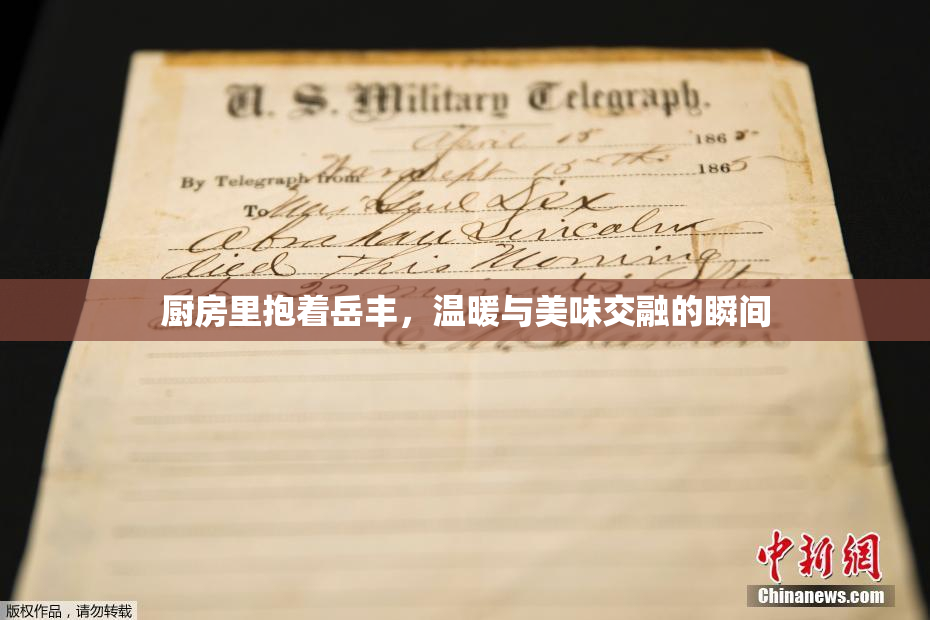 U. S. Military Telegraph.
April 15 1865
By Telegraph from War Dept 15th 1865
To Maj Genl Dix
Abraham Lincoln
died This Morning
at 22 minutes after
厨房里抱着岳丰，温暖与美味交融的瞬间
E. M. Stanton
中新网
Chinanews.com
版权作品，请勿转载